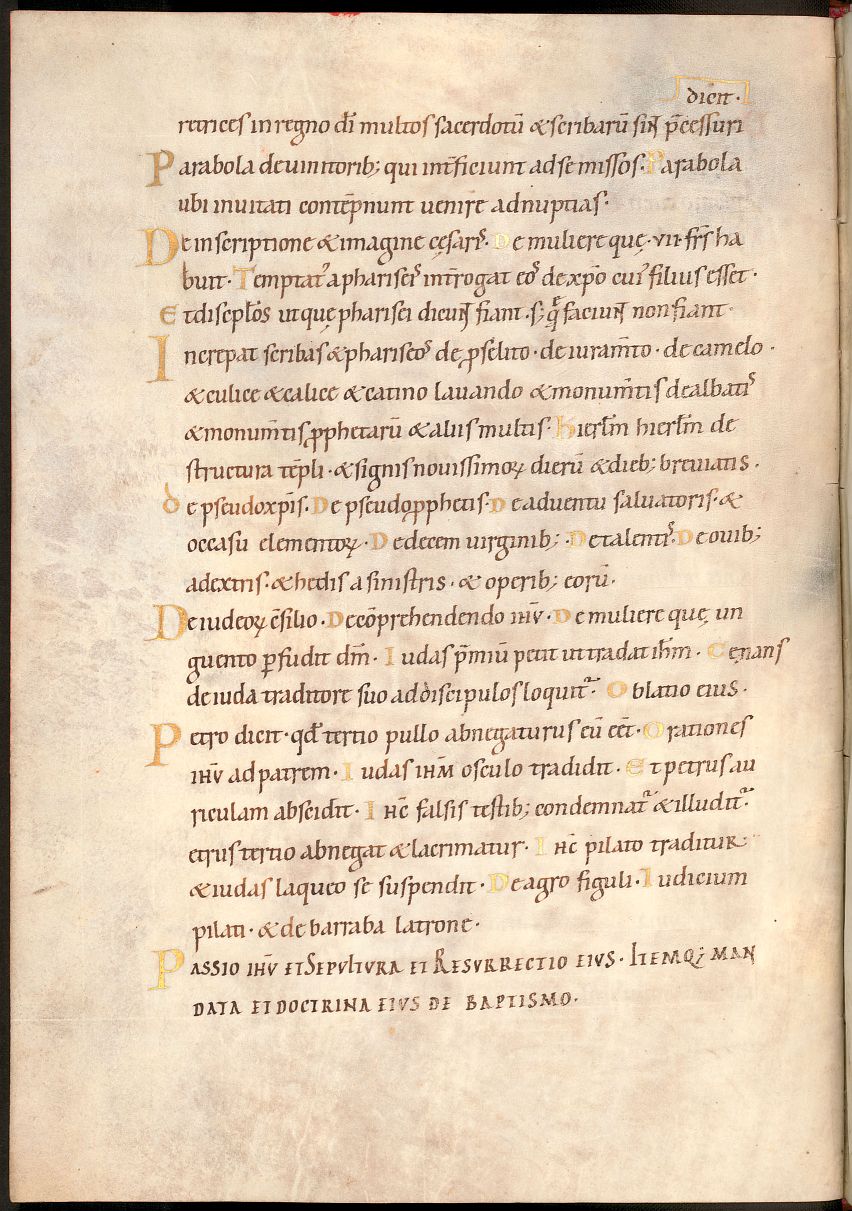 dicit·
retrices in regno dī multos sacerdotū & scribarū sin̄t p̄cessuri
Parabola deuinitorib; qui int̄ficiunt ad se missos· Parabola
ubi inuitati contēpnunt uenire ad nuptias·
De inscriptione & imagine cęsarisˀ· De muliere quę·vii·fr̄s ha
buit· Temptatˀ a phariseisˀ int̄rogat eosˀ de xp̄o cuiˀ filius esset·
Et discip̄los ut quę pharisei dicun̄t fiant·s; q̄ faciun̄t non fiant·
Increpat scribas & phariseosˀ de p̄selito·de iuram̄to·de camelo·
& culice & calice & catino lauando & monum̄tis dealbatisˀ
& monum̄tis p̄phetarū & aliis multis· Hierl̄m hierl̄m de
structura tēpli·& signis nouissimoꝝ dierū & dieb; breuiatis·
de pseudoxp̄is· De pseudop̄phetis· De aduentu saluatoris·&
occasu elementoꝝ· De decem uirginib;· De talentisˀ· De ouib;
a dextris·& hedis a sinistris·& operib; eorū·
De iudeoꝝ c̄silio· De cōprehendendo ihv̄· De muliere quę un
guento ꝑfudit dm̄· Iudas p̄miū petit ut tradat ih̄m· Cęnans
de iuda traditore suo ad discipulos loquit᷑· Oblatio eius·
Petro dicit·qd̄ tertio pullo abnegaturus eū eēt· Orationes
ihv̄ ad patrem· Iudas ihm̄ osculo tradidit· Et petrus au
riculam abscidit· Ihc̄ falsis testib; condemnat᷑ & illudit᷑·
etrus tertio abnegat & lacrimatur· Ihc̄ pilato traditur
& iudas laqueo se suspendit· De agro figuli· Iudicium
pilati·& de barraba latrone·
Passio ihv̄ et Sepvltvra et Resvrrectio eivs· Itemq; man
data et doctrina eivs de baptismo·